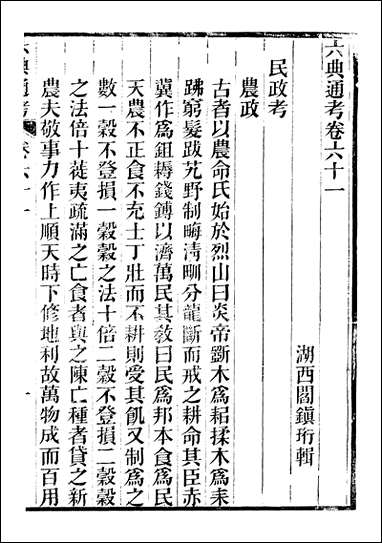 六典通考卷六十一
湖西閻鎮珩輯
民政考
農政
古者以農命氏始於烈山曰炎帝斷木為耜揉木為耒
踈窮髮跋芃野制畮清甽分龍斷而戒之耕命其臣赤
冀作為鉏耨錢鏄以濟萬民其教曰民為邦本食為民
天農不正食不充士丁壯而不耕則受其飢又制為之
數一穀不登損一穀穀之法十倍二穀不登損二穀穀
之法倍十蓰夷疏滿之亡食者與之陳亡種者貸之新
農夫敬事力作上順天時下修地利故萬物成而百用
六典通考
卷六十一
一